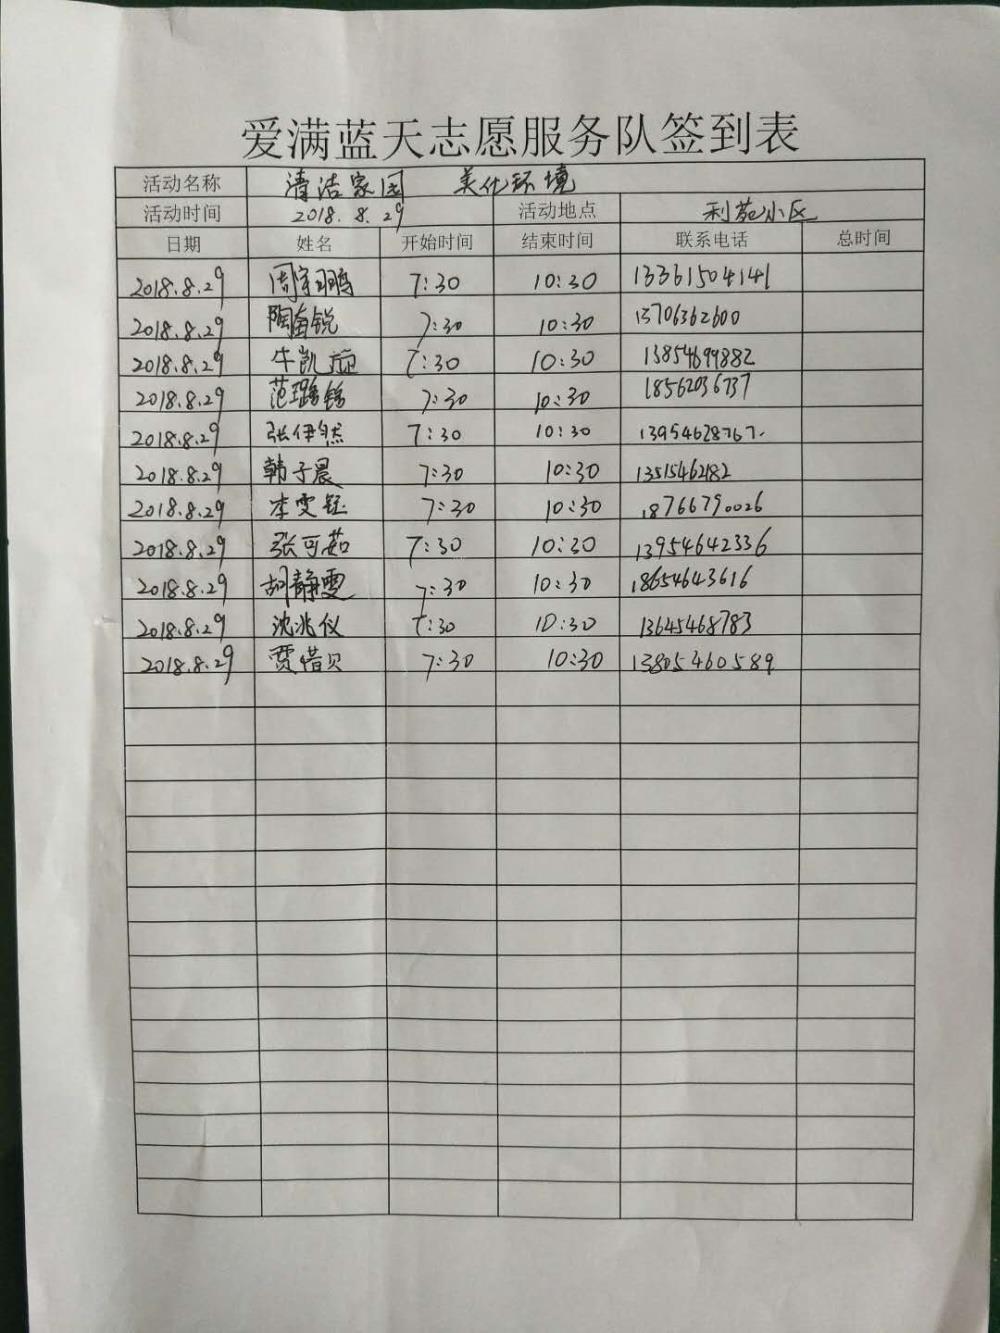 爱满蓝天志愿服务队签到表
活动名称 清洁家园 美化环境
活动时间 2018.8.29 活动地点 利苑小区
日期 姓名 开始时间 结束时间 联系电话 总时间
2018.8.29 周宇鹏 7:30 10:30 13361504141
2018.8.29 陶奋锐 7:30 10:30 13706362600
2018.8.29 牛凯旋 7:30 10:30 13854699882
2018.8.29 范璐锦 7:30 10:30 18562036737
2018.8.29 张伊然 7:30 10:30 13954628767.
2018.8.29 韩子晨 7:30 10:30 13515462182
2018.8.29 李雯钰 7:30 10:30 18766790026
2018.8.29 张可茹 7:30 10:30 13954642336
2018.8.29 胡静雯 7:30 10:30 18654643616
2018.8.29 沈兆仪 7:30 10:30 13645468783
2018.8.29 贾惜贝 7:30 10:30 13805460589